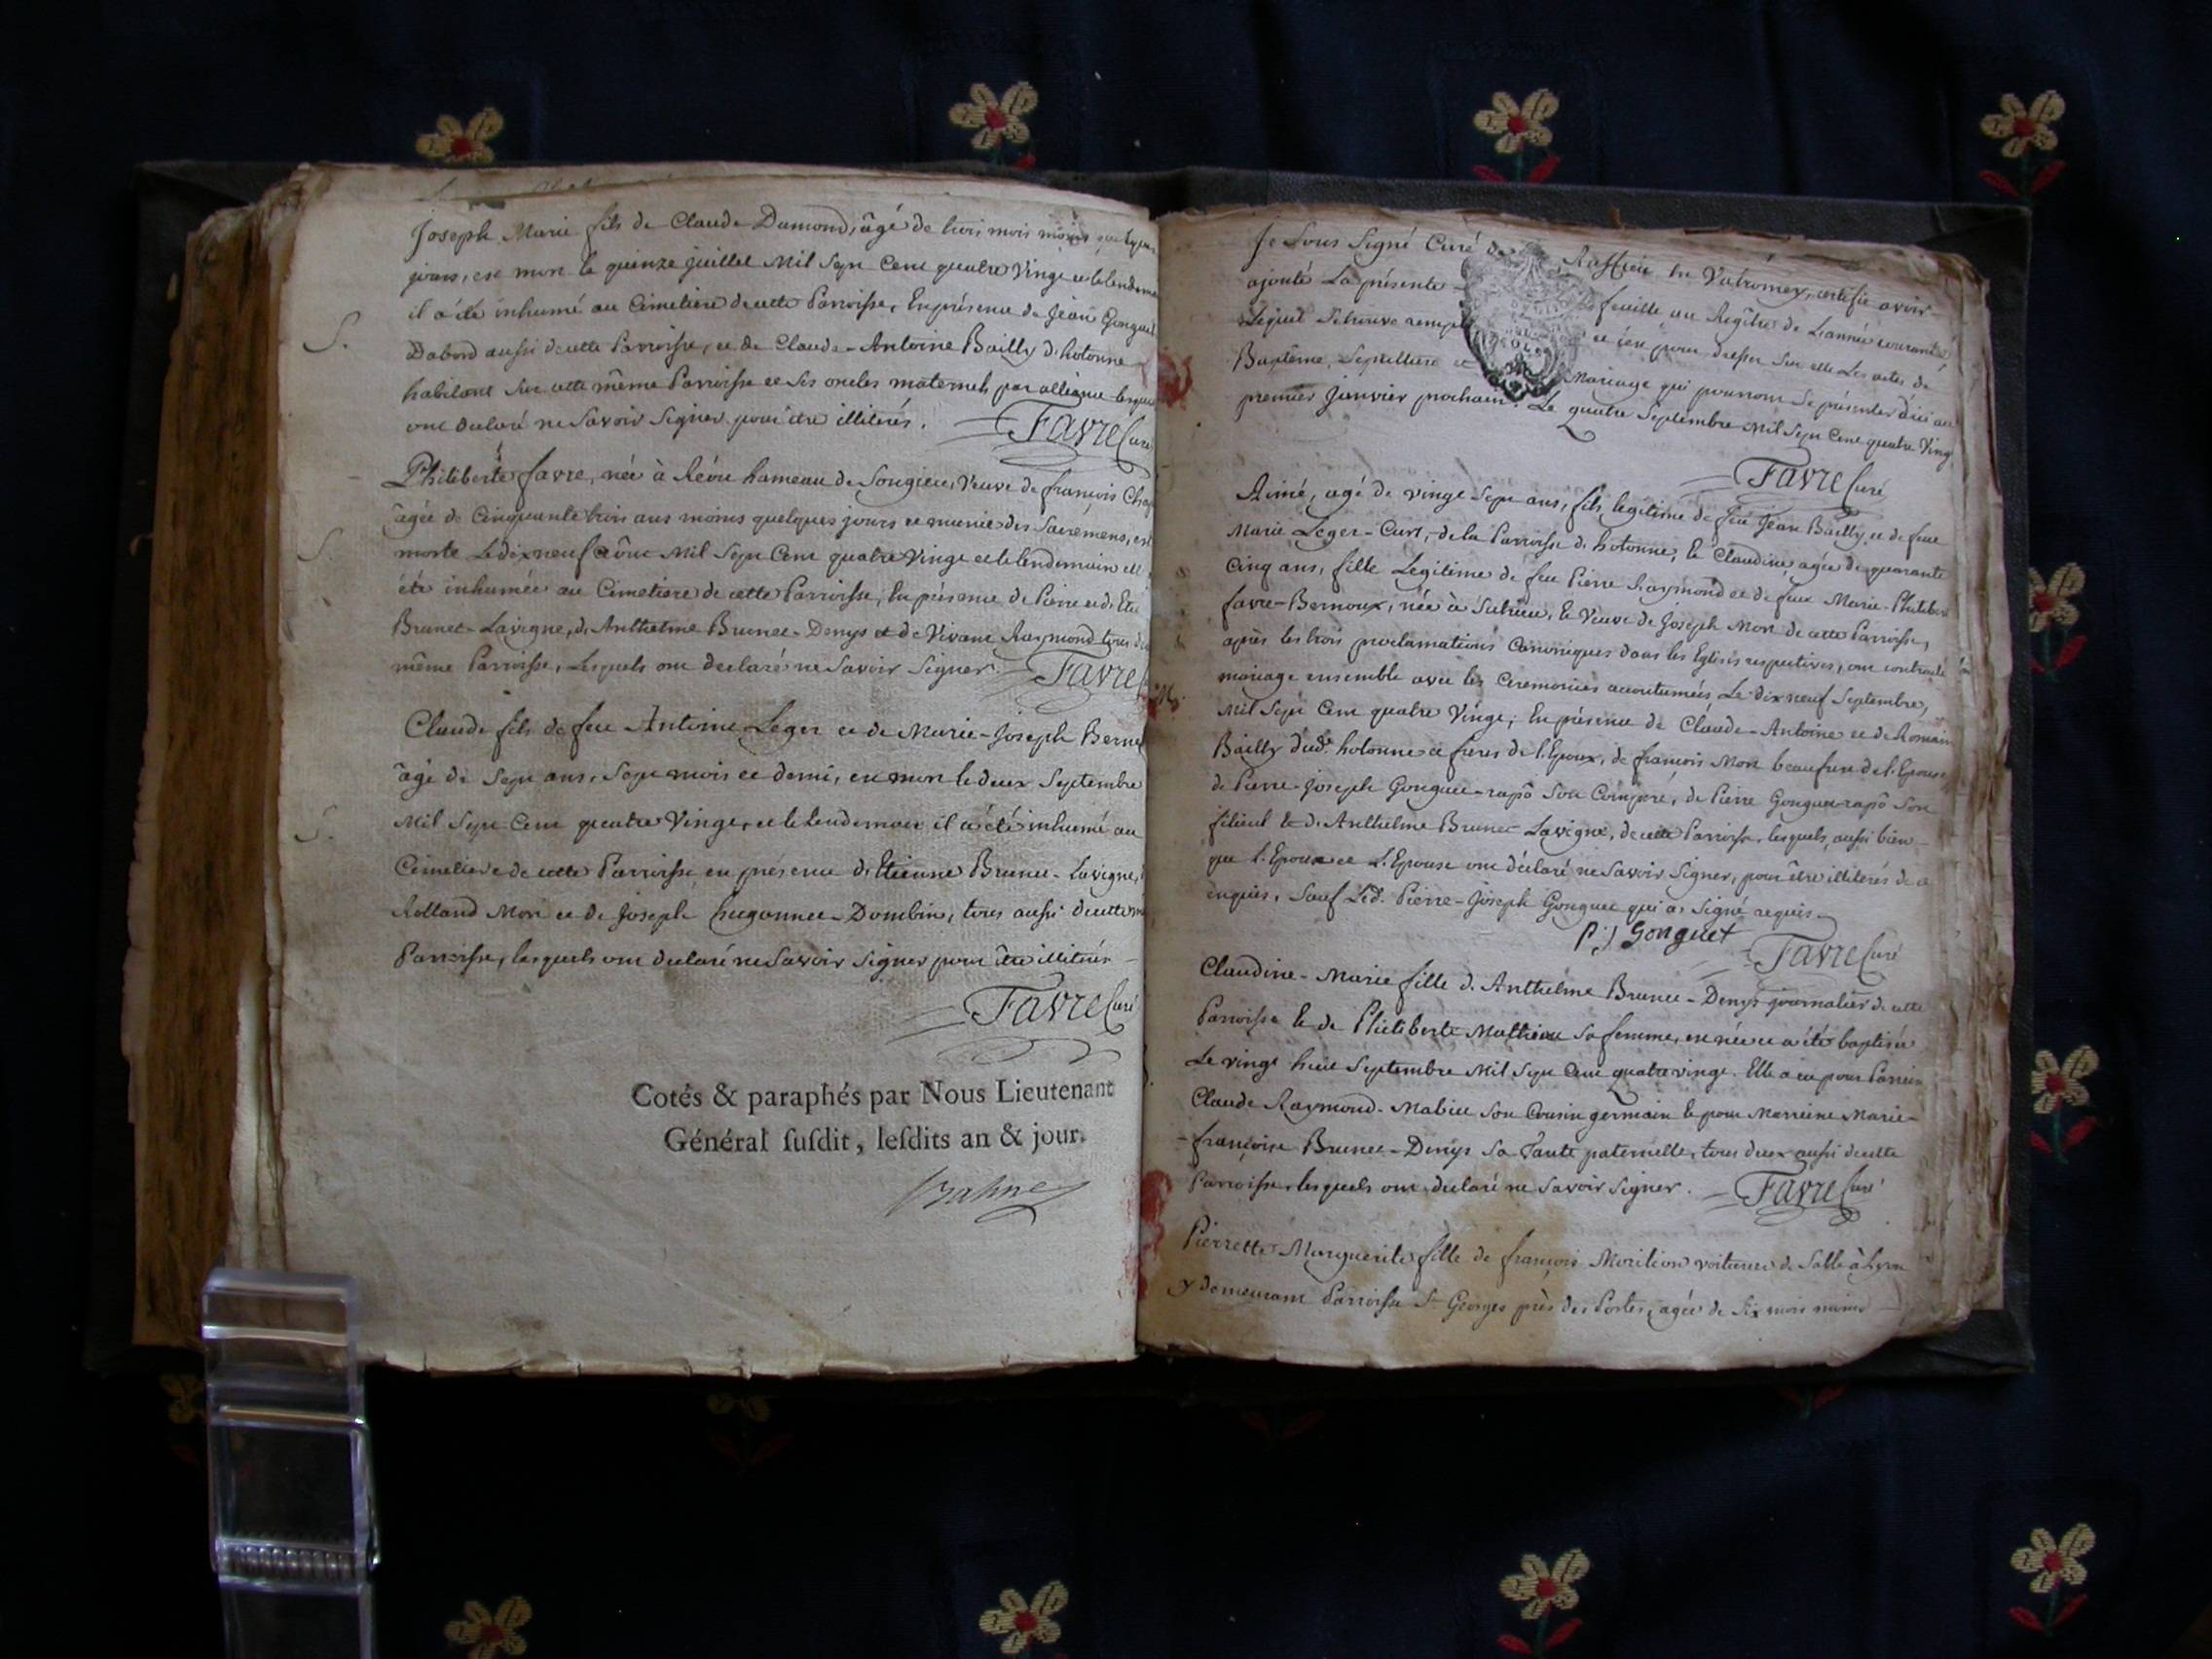 Joseph Marie fils de Claude Dumond, âgé de trois mois moins quelques
jours, est mort le quinze juillet Mil Sept Cent quatre Vingt et le lendemain
il a été inhumé au Cimetiere de cette Parroisse, En présence de Jean Gonguet
Dabord aussi de cette Parroisse, et de Claude-Antoine Bailly d'hotonne
habitant sur cette même Parroisse et ses oncles maternels par alliance lesquels
S.
ont declaré ne Savoir Signer pour être illiterés.
Favre Curé
Philiberte favre, née à hameau de Songieu, Veuve de françois
âgée de Cinquante trois ans moins quelques jours et munie des Sacremens, est
morte Le dix neuf Aôut Mil Sept Cent quatre Vingt et le lendemain elle
S.
été inhumée au Cimetiere de cette Parroisse, En présence de Pierre et d'
Brunet-Lavigne, d'Anthelme Brunet-Denys et de Vivant Raymond tous de
même Parroisse, Lesquels ont declaré ne Savoir Signer.
Favre
Claude fils de feu Antoine Leger et de Marie-Joseph
âgé de Sept ans, Sept mois et demi, est mort le deux Septembre
Mil Sept Cent quatre Vingt, et le Lendemain il a été inhumé au
S.
Cimetiere de cette Parroisse en présence d'Etienne Brunet-Lavigne,
Rolland Mon et de Joseph hugonnet-Dombin, tous aussi de cette
Parroisse, lesquels ont declaré ne Savoir Signer pour être illiterés
Favre Curé
Cotés & paraphés par Nous Lieutenant
Général susdit, lesdits an & jour.
Je Sous Signé Curé de Ruffieu en Valromey, certifie avoir
ajouté La présente feuille au Regître de L'année courante
Lequel Setrouve rempli et ce pour dresser Sur elle Les actes de
Baptême, Sepulture et Mariage qui pourront Se présenter d'ici au
premier Janvier prochain. Le quatre Septembre Mil Sept Cent quatre Vingt
Favre Curé
Aimé, agé de vingt Sept ans, fils legitime de feu Jean Bailly et de feue
Marie Leger-Curt, de la Parroisse d'hotonne, & Claudine, agée de quarante
Cinq ans, fille Legitime de feu Pierre Raymond et de feue Marie-Philiberte
favre-Bernoux, née à Sutrieu, & Veuve de Joseph Mon de cette Parroisse,
après les trois proclamations Canoniques dans les Eglises respectives, ont contracté
M.
mariage ensemble avec les Ceremonies accoutumées, Le dix neuf Septembre,
Mil Sept Cent quatre Vingt, En présence de Claude-Antoine et de Romain
Bailly dud. hotonne et freres de l'Epoux, de françois Mon beaufrere de l'Epouse,
de Pierre-Joseph Gonguet-rapô Son Compere, de Pierre Gonguet-rapô Son
filieul & d'Anthelme Brunet-Lavigne, de cette Parroisse, lesquels, aussi bien
que l'Epoux et L'Epouse ont déclaré ne Savoir Signer, pour être illiterés de ce
enquis, Sauf Led. Pierre-Joseph Gonguet qui a Signé requis.
P: J Gonguet
Favre Curé
Claudine-Marie fille d'Anthelme Brunet-Denys journalier de cette
Parroisse & de Philiberte Mathieu Sa femme, est née et a été baptisée
Le vingt huit Septembre Mil Sept Cent quatre vingt. Elle a eu pour Parrein
Claude Raymond-Mabiu Son Cousin germain & pour Marreine Marie-
françoise Brunet-Denys Sa Tante paternelle, tous deux aussi de cette
Parroisse, lesquels ont declaré ne Savoir Signer.
Favre Curé
Pierrette Marguerite fille de françois voiturier de Sable à Lyon
y demeurant Parroisse St Georges près des Portes, agée de Six mois moins